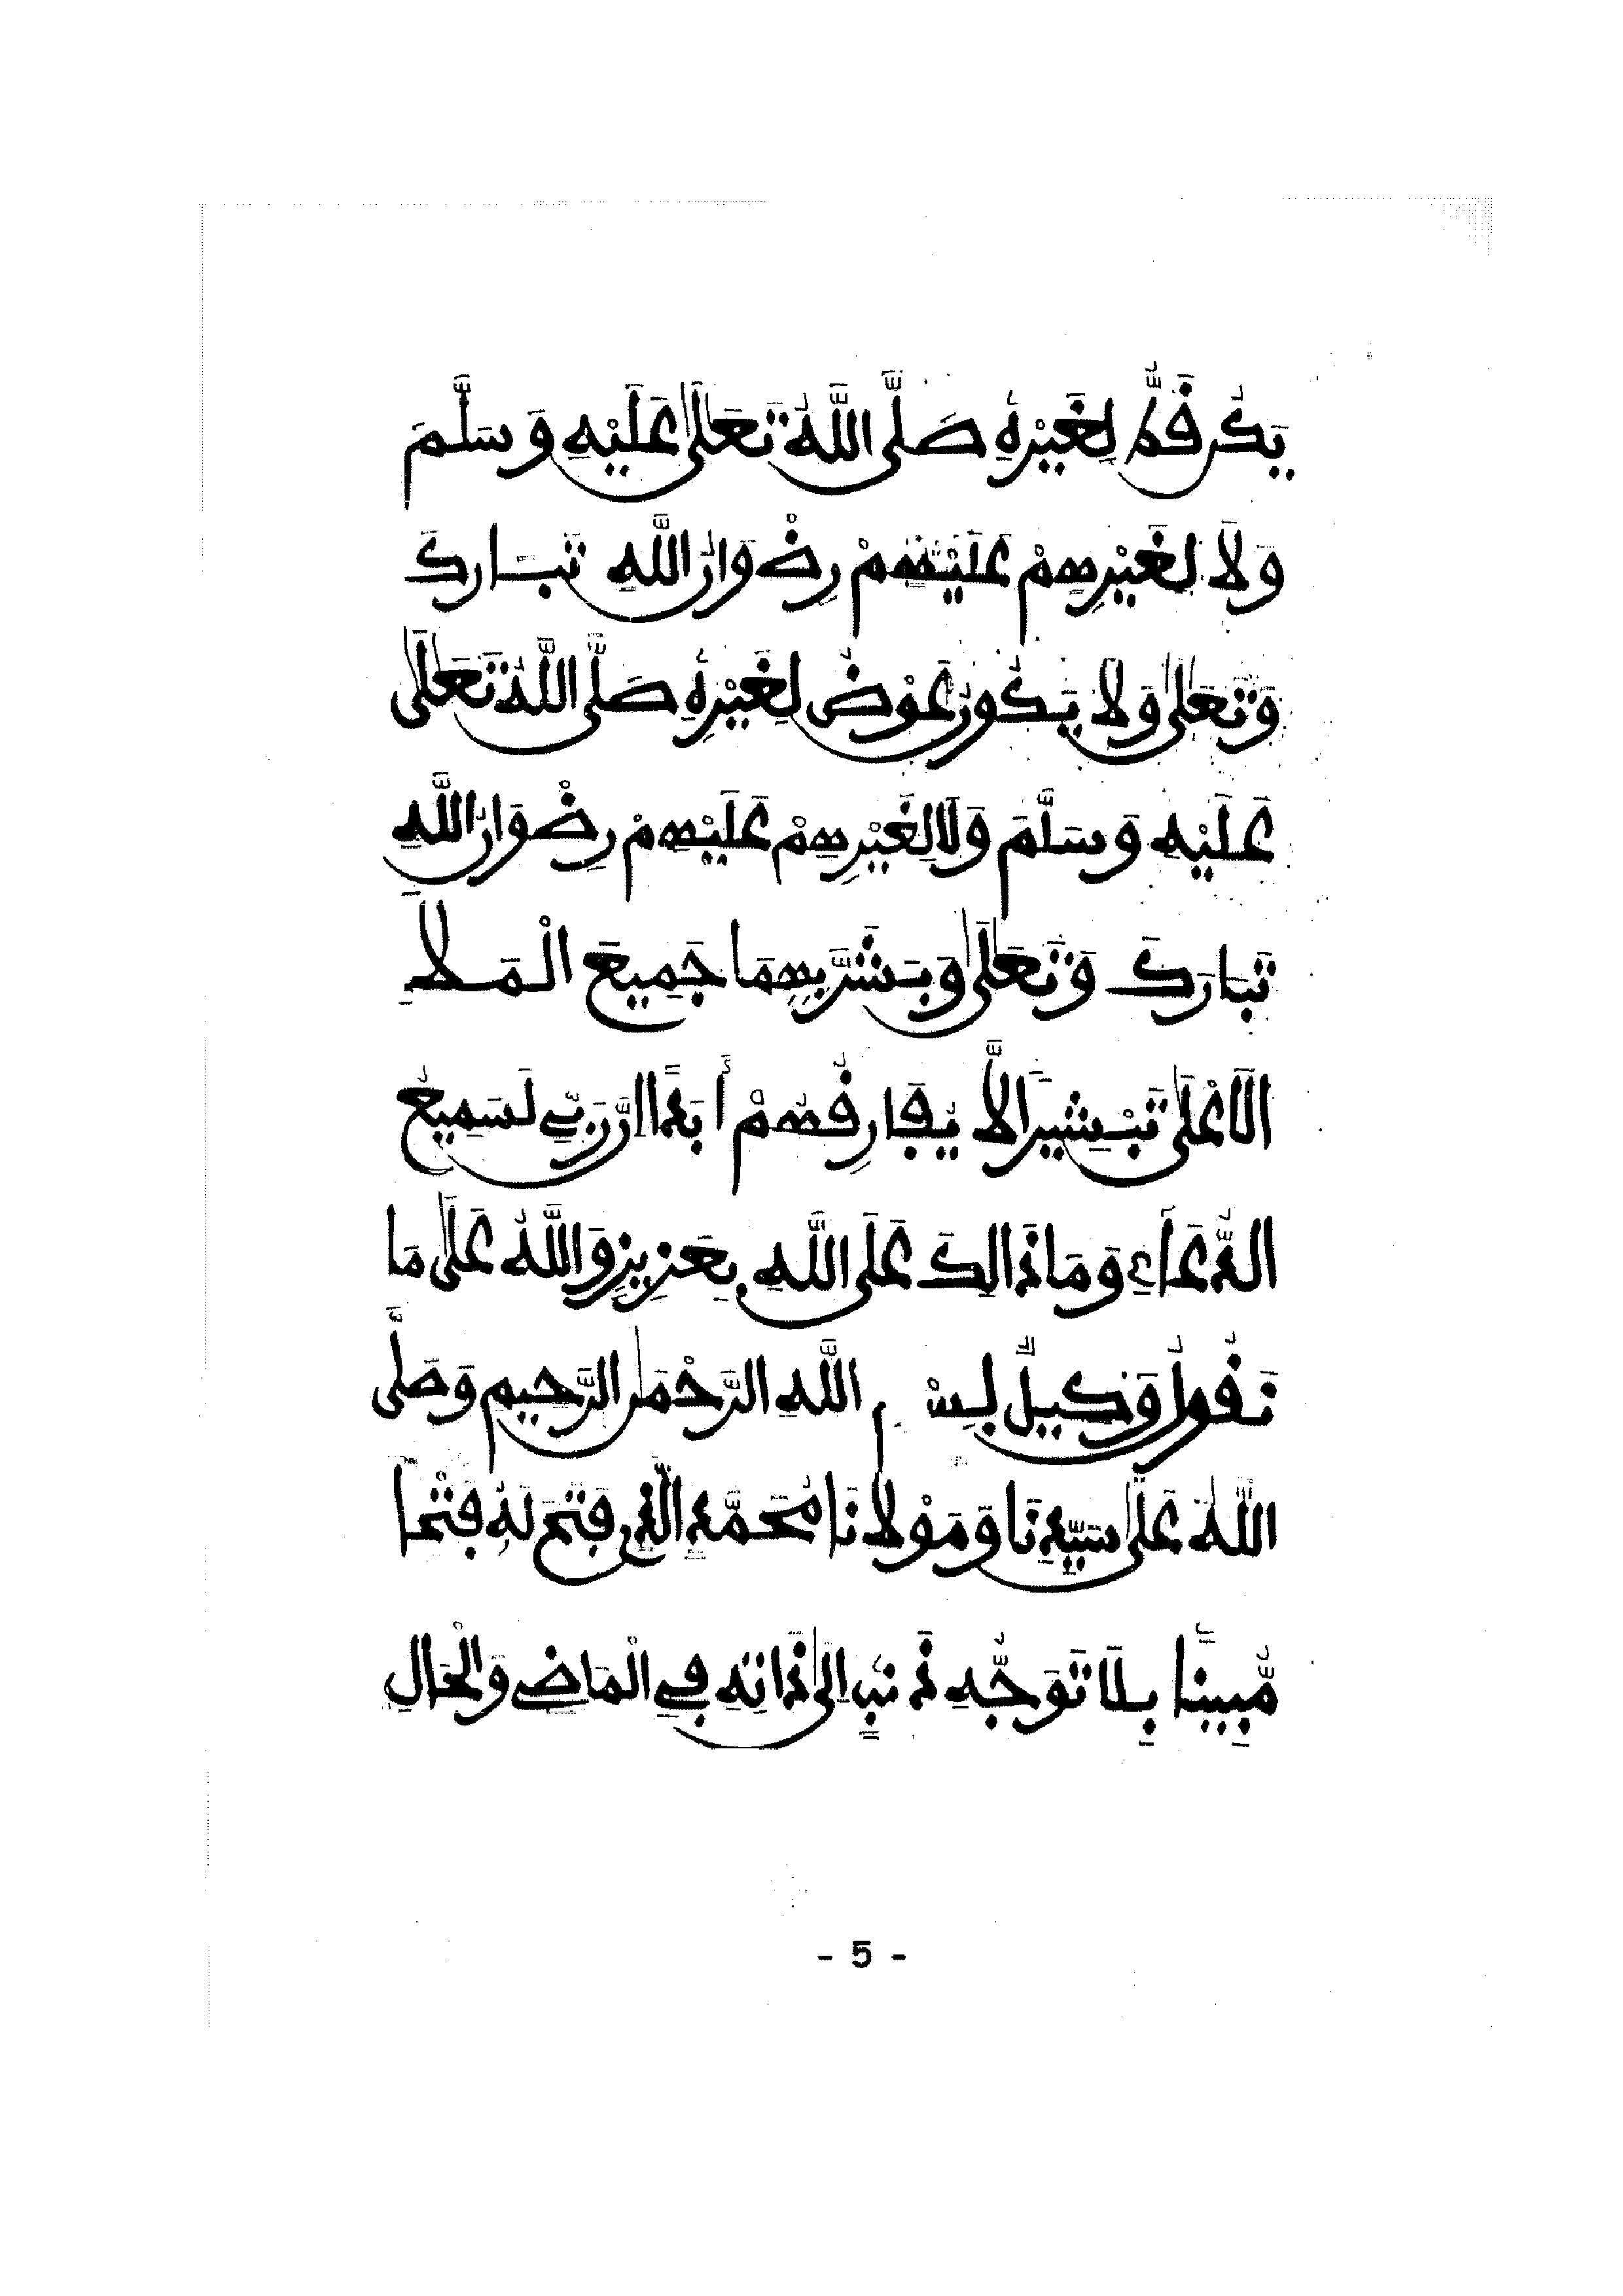 يَكُن قَطُّ لِغَيْرِهِ صَلَّى اللَّهُ تَعَلَى عَلَيْهِ وَسَلَّمَ
وَلَا لِغَيْرِهِمْ عَلَيْهِمْ رِضْوَانُ اللَّهِ تَبَارَكَ
وَتَعَلَى وَلَا يَكُونُ عِوَضُ لِغَيْرِهِ صَلَّى اللَّهُ تَعَلَى
عَلَيْهِ وَسَلَّمَ وَلَا لِغَيْرِهِمْ عَلَيْهِمْ رِضْوَانُ اللَّهِ
تَبَارَكَ وَتَعَلَى وَبَشَّرَ بِهِمَا جَمِيعَ الْمَلَإِ
الَاعْلَى تَبْشِيرًا لَّا يُفَارِقُهُمْ أَبَدًا إِنَّ رَبِّي لَسَمِيعُ
الدُّعَاءِ وَمَا ذَالِكَ عَلَى اللَّهِ بِعَزِيزٍ وَاللَّهُ عَلَى مَا
نَقُولُ وَكِيلٌ بِسْمِ اللَّهِ الرَّحْمَنِ الرَّحِيمِ وَصَلَّى
اللَّهُ عَلَى سَيِّدِنَا وَمَوْلَانَا مُحَمَّدٍ الَّذِي فَتَحَ لَهُ فَتْحًا
مُّبِينًا بِلَا تَوَجُّهِ ذَنْبٍ إِلَى ذَاتِهِ فِي الْمَاضِي وَالْحَالِ
- 5 -